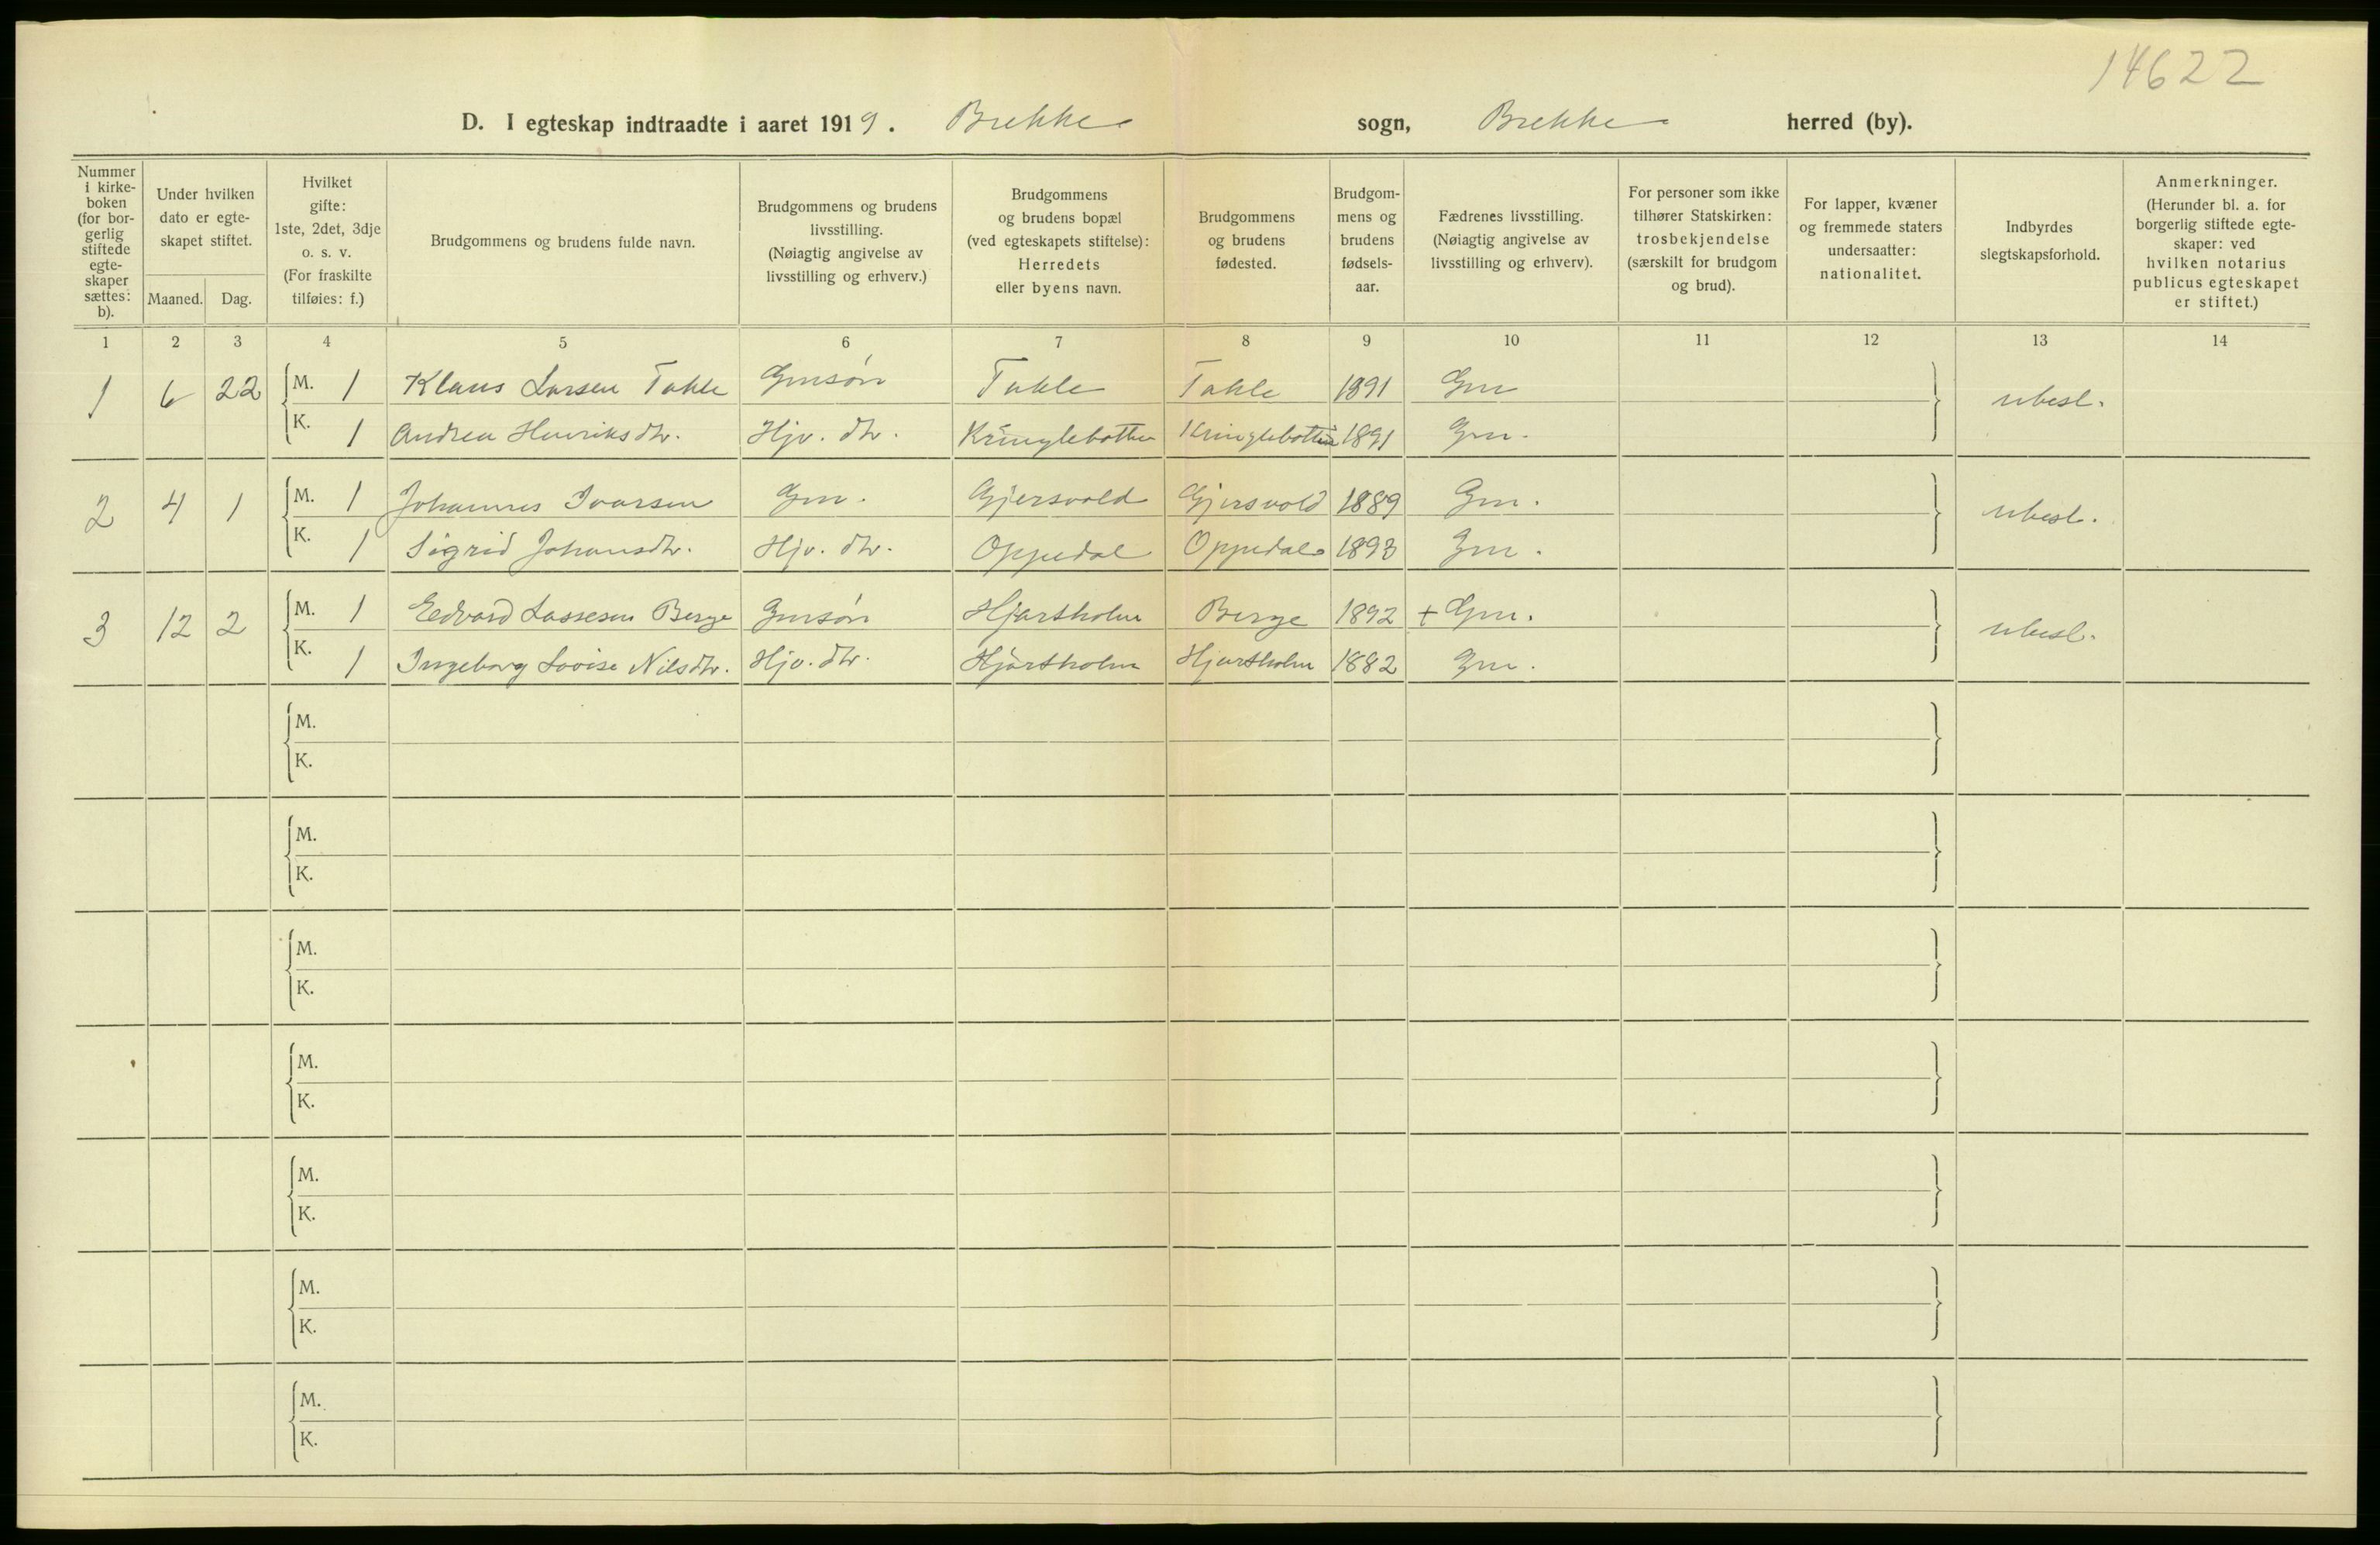 14622
D. I egteskap indtraadte i aaret 1919. Brekke sogn, Brekke herred (by).
Nummer i kirke-boken (for bor-gerlig stiftede egte-skaper sættes: b).
Under hvilken dato er egte-skapet stiftet.
Maaned. Dag.
Hvilket gifte: 1ste, 2det, 3dje o. s. v. (For fraskilte tilføies: f.)
Brudgommens og brudens fulde navn.
Brudgommens og brudens livsstilling. (Nøiagtig angivelse av livsstilling og erhverv.)
Brudgommens og brudens bopæl (ved egteskapets stiftelse): Herredets eller byens navn.
Brudgommens og brudens fødested.
Brudgom-mens og brudens fødsels-aar.
Fædrenes livsstilling. (Nøiagtig angivelse av livsstilling og erhverv).
For personer som ikke tilhører Statskirken: trosbekjendelse (særskilt for brudgom og brud).
For lapper, kvæner og fremmede staters undersaatter: nationalitet.
Indbyrdes slegtskapsforhold.
Anmerkninger. (Herunder bl. a. for borgerlig stiftede egte-skaper: ved hvilken notarius publicus egteskapet er stiftet.)
1 2 3 4 5 6 7 8 9 10 11 12 13 14
1 6 22 M. 1 Klaus Larsen Takle Gmsøn Takle Takle 1891 Gm ubesl.
K. 1 Andrea Henriksdtr. Hjv. dtr. Kringlebotten Kringlebotten 1891 Gm.
2 4 1 M. 1 Johannes Ivarsen Gm. Gjersvold Gjersvold 1889 Gm. ubesl.
K. 1 Sigrid Johansdtr. Hjv. dtr. Oppedal Oppedal 1893 Gm.
3 12 2 M. 1 Edvard Lassesen Berge Gmsøn Hjartholm Berge 1892 + Gm. ubesl.
K. 1 Ingeborg Lovise Nilsdtr. Hjv. dtr. Hjartholm Hjartholm 1882 Gm.
M.
K.
M.
K.
M.
K.
M.
K.
M.
K.
M.
K.
M.
K.